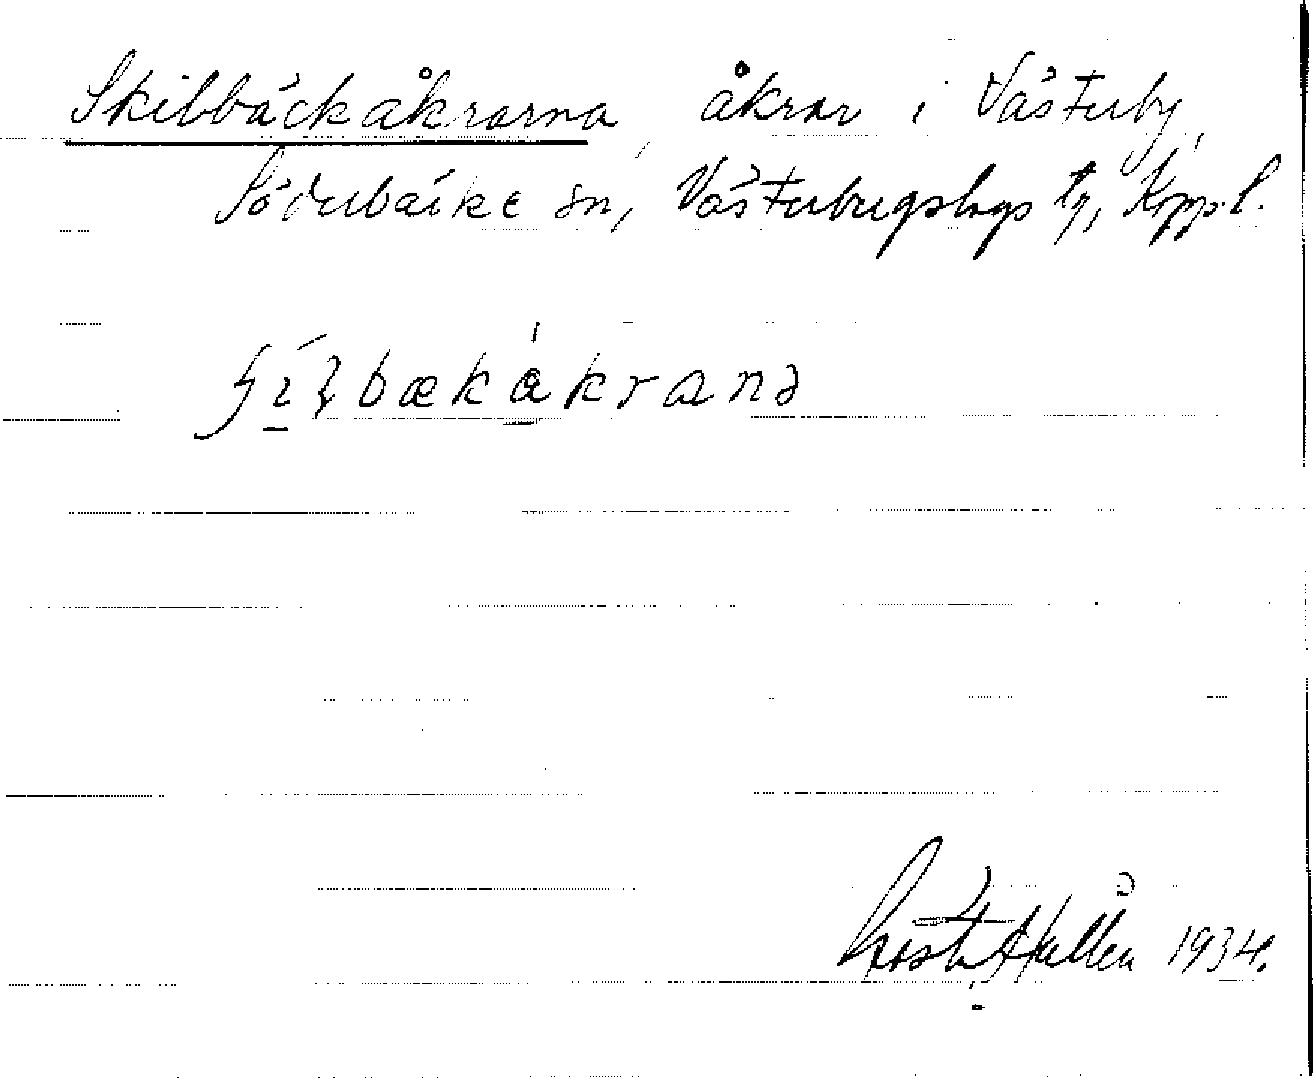 Skilbäckåkrarna, åkrar i Västerby,
Söderbärke sn, Västerbergslags tg, Kppl.
bækåkranə
Gösta Hallén 1934.